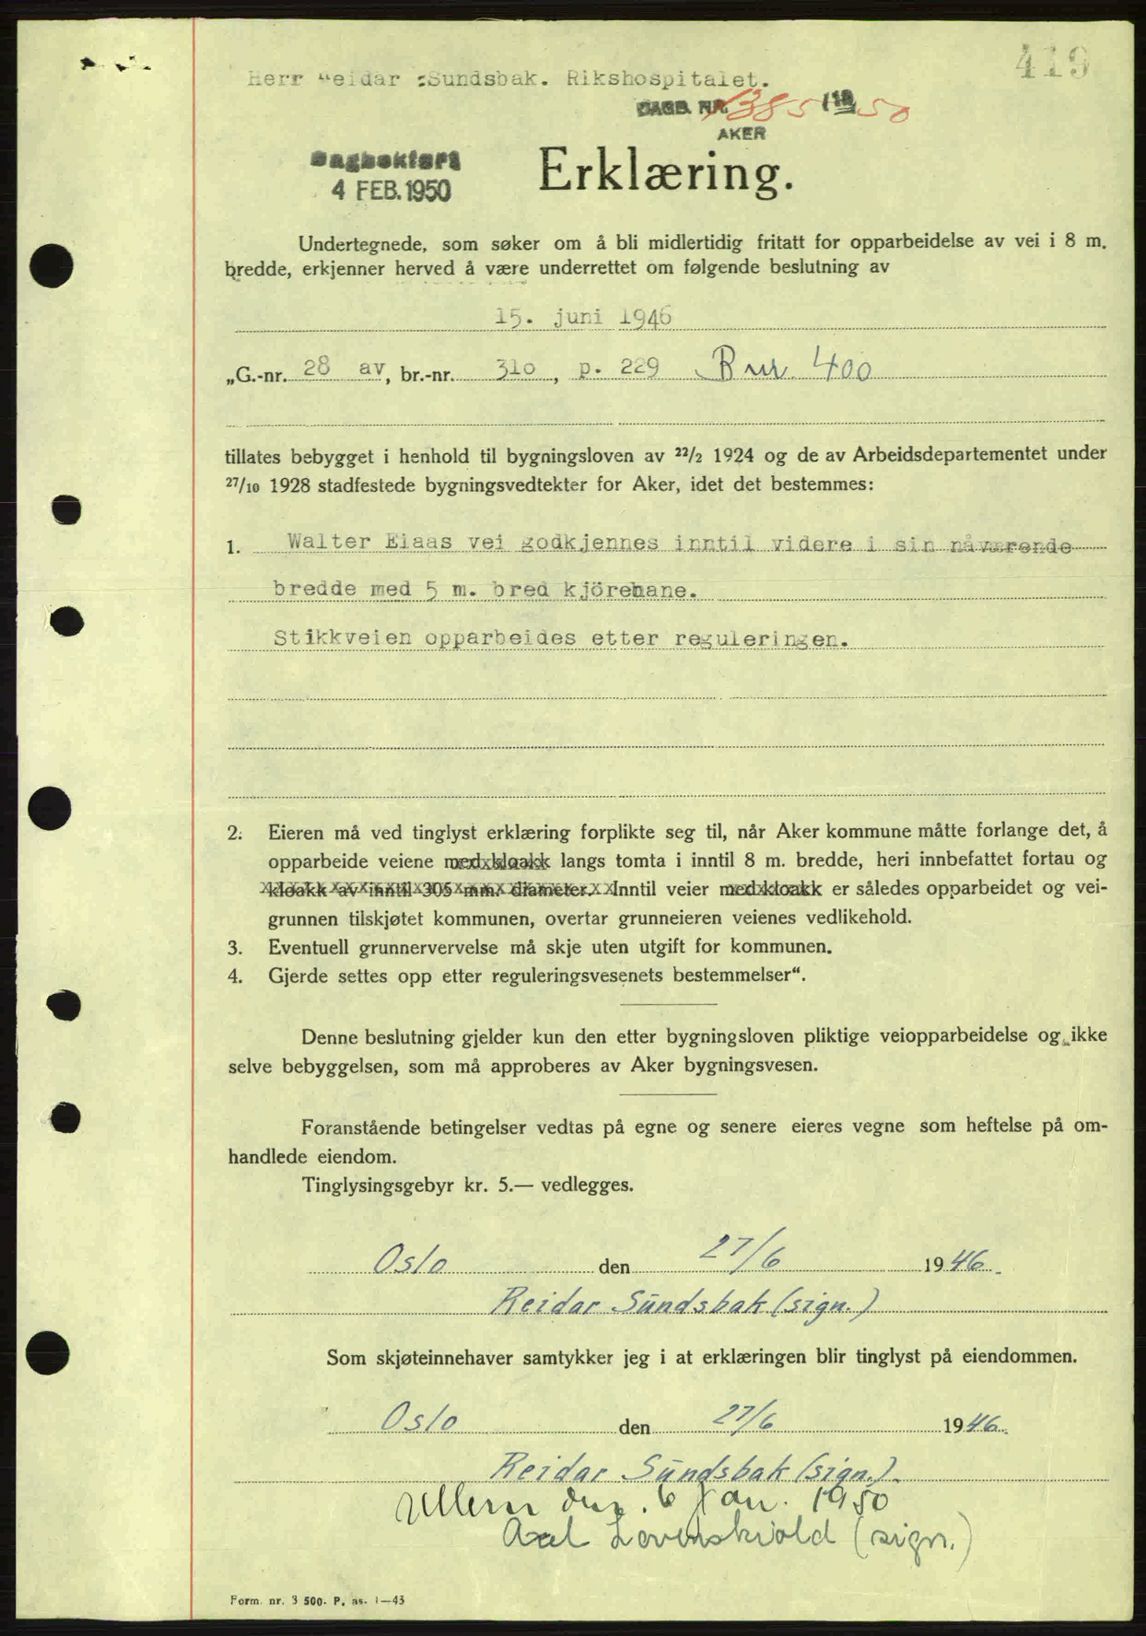 419
Herr Reidar Sundsbak. Rikshospitalet.
DAGB. NR. 1385 19 50
AKER
Dagbokført
4 FEB. 1950
Erklæring.
Undertegnede, som søker om å bli midlertidig fritatt for opparbeidelse av vei i 8 m.
bredde, erkjenner herved å være underrettet om følgende beslutning av
15. juni 1946
„G.-nr. 28 av, br.-nr. 310, p. 229 Bnr. 400
tillates bebygget i henhold til bygningsloven av 22/2 1924 og de av Arbeidsdepartementet under
27/10 1928 stadfestede bygningsvedtekter for Aker, idet det bestemmes:
1. Walter Elaas vei godkjennes inntil videre i sin nåværende
bredde med 5 m. bred kjörebane.
Stikkveien opparbeides etter reguleringen.
2. Eieren må ved tinglyst erklæring forplikte seg til, når Aker kommune måtte forlange det, å
opparbeide veiene med kloakk langs tomta i inntil 8 m. bredde, heri innbefattet fortau og
kloakk av inntil 305 mm. diameter. Inntil veier med kloakk er således opparbeidet og vei-
grunnen tilskjøtet kommunen, overtar grunneieren veienes vedlikehold.
3. Eventuell grunnervervelse må skje uten utgift for kommunen.
4. Gjerde settes opp etter reguleringsvesenets bestemmelser“.
Denne beslutning gjelder kun den etter bygningsloven pliktige veiopparbeidelse og ikke
selve bebyggelsen, som må approberes av Aker bygningsvesen.
Foranstående betingelser vedtas på egne og senere eieres vegne som heftelse på om-
handlede eiendom.
Tinglysingsgebyr kr. 5.— vedlegges.
Oslo den 27/6 1946.
Reidar Sundsbak (sign.)
Som skjøteinnehaver samtykker jeg i at erklæringen blir tinglyst på eiendommen.
Oslo den 27/6 1946.
Reidar Sundsbak (sign.).
Ullern den 6 Jan. 1950
Axel Løvenskiold (sign.)
Form. nr. 3 500. P. as. 1—43